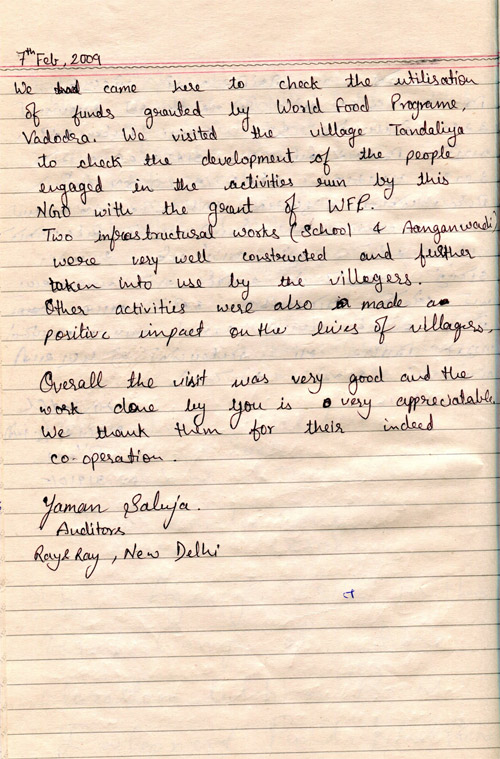 7th Feb, 2009
We came here to check the utilisation
of funds granted by World Food Programe,
Vadodra. We visited the village Tandaliya
to check the development of the people
engaged in the activities run by this
NGO with the grant of WFP.
Two infrastructural works (School & Aanganwadi)
were very well constructed and further
taken into use by the villagers.
Other activities were also made a
positive impact on the lives of villagers.
Overall the visit was very good and the
work done by you is very appreciatable.
We thank them for their indeed
co-operation.
Yaman Saluja.
Auditors
Ray & Ray, New Delhi